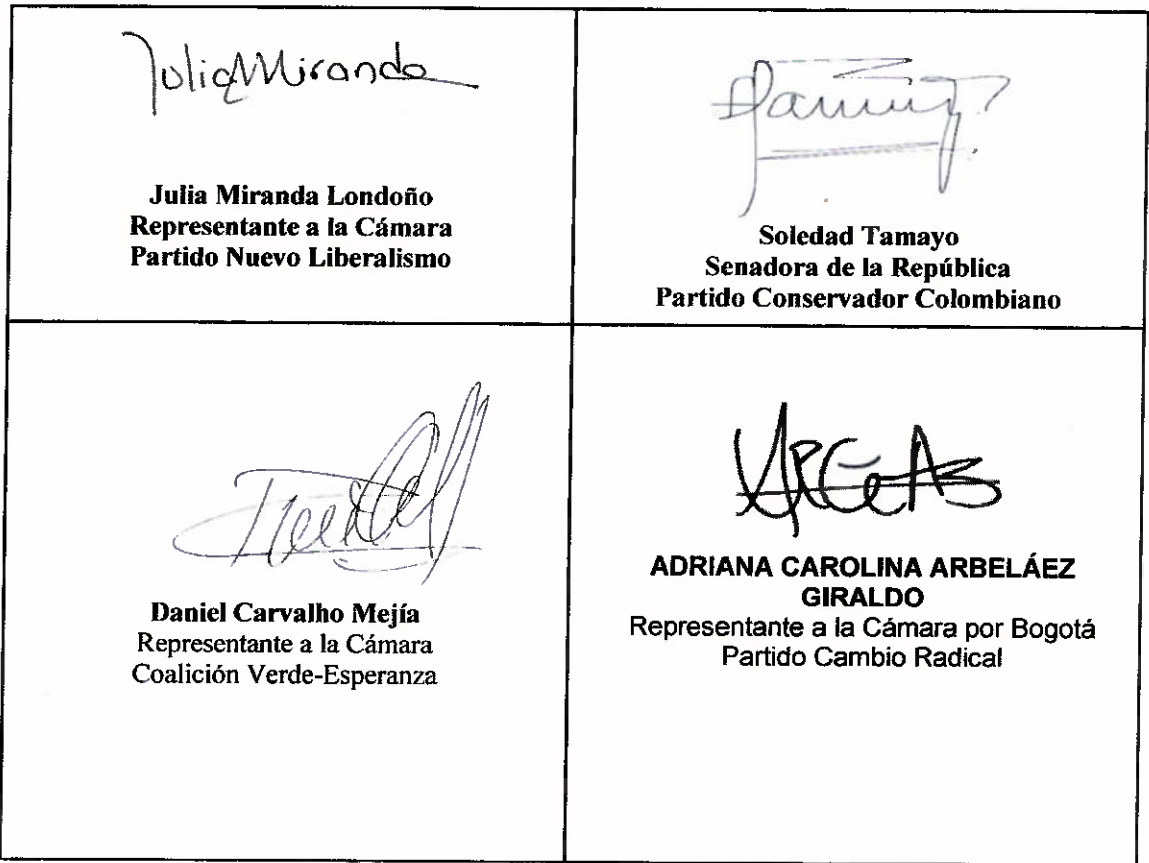 Julia Miranda
Julia Miranda Londoño
Representante a la Cámara
Partido Nuevo Liberalismo
Soledad Tamayo
Senadora de la República
Partido Conservador Colombiano
Daniel Carvalho Mejía
Representante a la Cámara
Coalición Verde-Esperanza
ADRIANA CAROLINA ARBELÁEZ
GIRALDO
Representante a la Cámara por Bogotá
Partido Cambio Radical